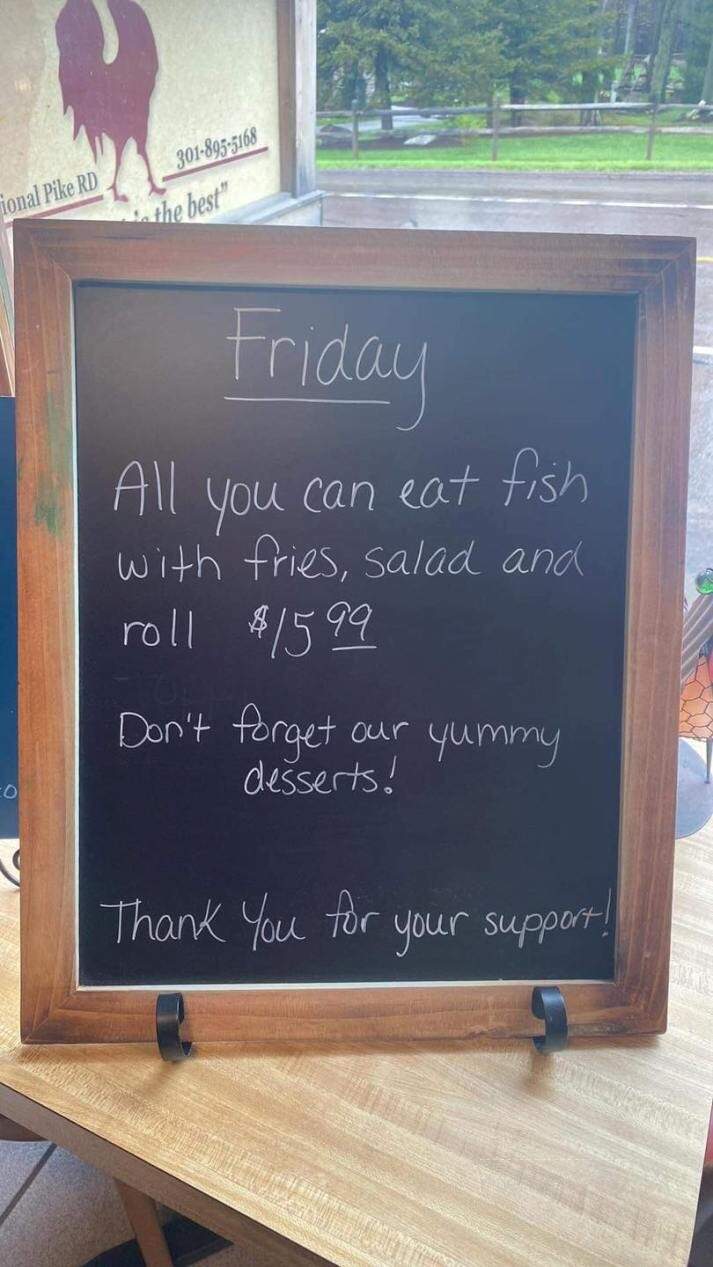 301-895-5168
ional Pike RD
the best"
Friday
All you can eat fish
with fries, salad and
roll $15 99
Don't forget our yummy
desserts!
Thank You for your support!